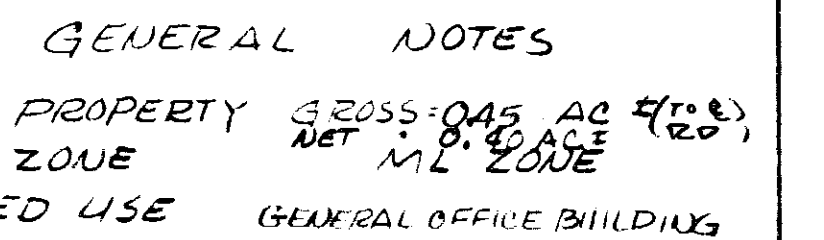 GENERAL NOTES
PROPERTY GROSS=0.45 AC ±(TO ℄ RD)
NET : 0.40 AC±
ZONE ML ZONE
ED USE GENERAL OFFICE BUILDING